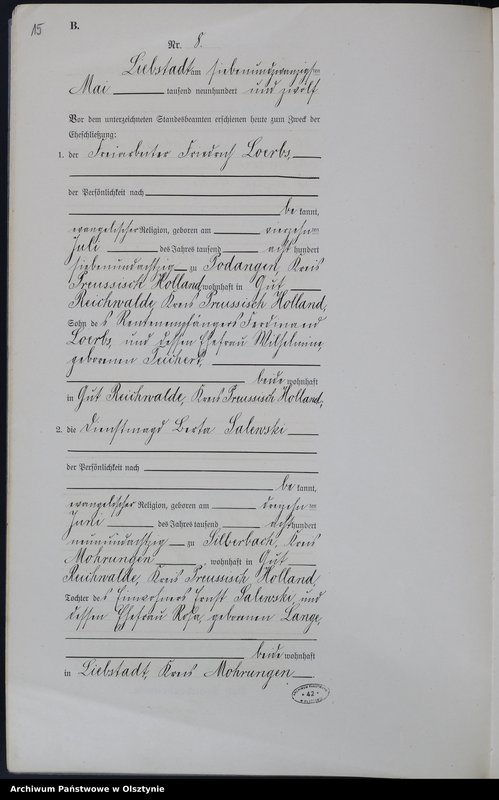 15
B.
Nr. 8.
Liebstadt am siebenundzwanzigsten
Mai tausend neunhundert und zwölf
Vor dem unterzeichneten Standesbeamten erschienen heute zum Zweck der
Eheschließung:
1. der Freiarbeiter Friedrich Loerbs,
der Persönlichkeit nach
be kannt,
evangelischer Religion, geboren am vierzehn ten
Juli des Jahres tausend acht hundert
siebenundachtzig zu Podangen, Kreis
Preussisch Holland, wohnhaft in Gut
Reichwalde, Kreis Preussisch Holland,
Sohn des Rentenempfängers Ferdinand
Loerbs, und dessen Ehefrau Wilhelmine,
geborenen Teichert,
beide wohnhaft
in Gut Reichwalde, Kreis Preussisch Holland,
2. die Dienstmagd Berta Salewski
der Persönlichkeit nach
be kannt,
evangelischer Religion, geboren am dreizehn ten
Juni des Jahres tausend acht hundert
neunundachtzig zu Silberbach, Kreis
Mohrungen wohnhaft in Gut
Reichwalde, Kreis Preussisch Holland,
Tochter des Einwohners Ernst Salewski, und
dessen Ehefrau Rosa, geborenen Lange,
beide wohnhaft
in Liebstadt, Kreis Mohrungen
42
Archiwum Państwowe w Olsztynie